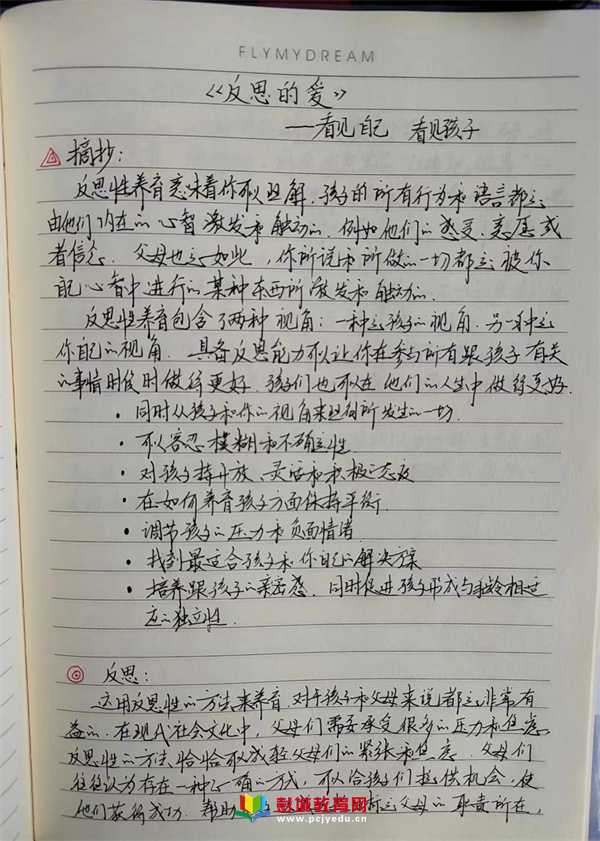 FLYMYDREAM
《反思的爱》
——看见自己 看见孩子
摘抄:
反思性养育意味着你可以理解,孩子的所有行为和语言都是
由他们内在的心智激发和触动的.例如他们的感受、意愿或
者信念.父母也是如此,你所说和所做的一切都是被你
自己心智中进行的某种东西所激发和触动的.
反思性养育包含了两种视角:一种是孩子的视角.另一种是
你自己的视角.具备反思能力可以让你在参与所有跟孩子有关
的事情时候时做得更好.孩子们也可以在他们的人生中做得更好.
· 同时从孩子和你的视角来理解所发生的一切.
· 可以容忍模糊和不确定性.
· 对孩子持开放、灵活和积极的态度
· 在如何养育孩子方面保持平衡.
· 调节孩子的压力和负面情绪.
· 找到最适合孩子和你自己的解决方案
· 培养跟孩子的亲密感.同时促进孩子形成与年龄相适
应的独立性.
反思:
运用反思性的方法来养育.对于孩子和父母来说都是非常有
益的.在现代社会文化中,父母们需要承受很多的压力和焦虑.
反思性的方法恰恰可以减轻父母们的紧张和焦虑.父母们
往往认为存在一种正确的方式,可以给孩子们提供机会,使
他们获得成功.帮助 是父母的职责所在,
彭城教育网
www.pcjyedu.cn